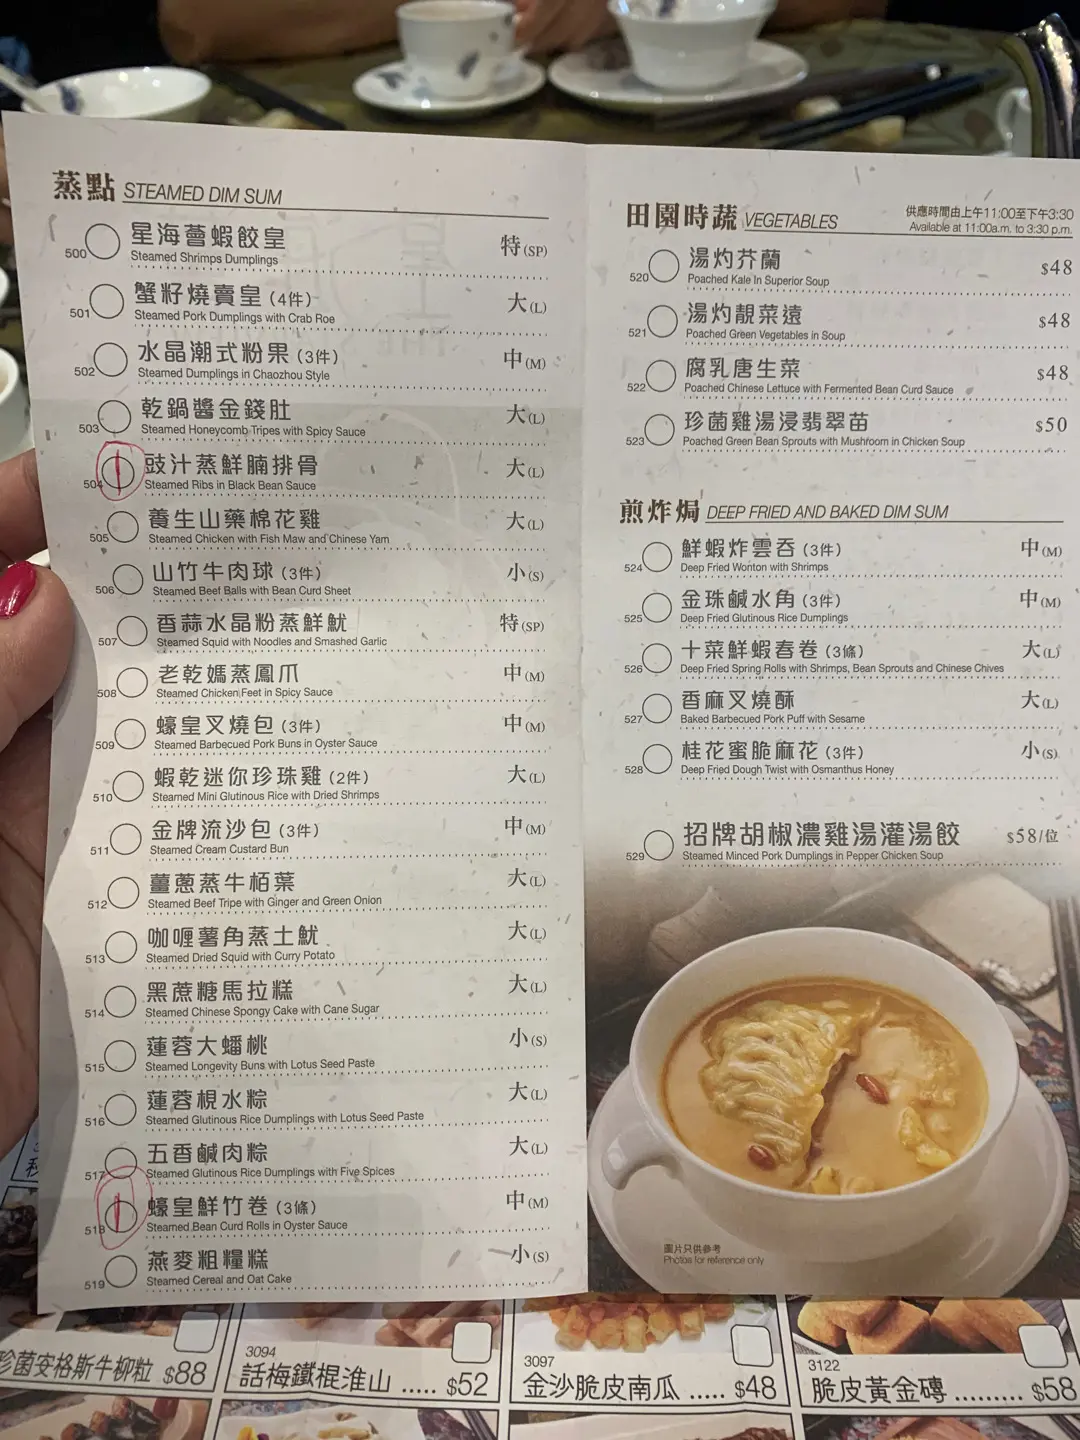 蒸點 STEAMED DIM SUM
500 星海薈蝦餃皇 特(SP)
Steamed Shrimps Dumplings
501 蟹籽燒賣皇 (4件) 大(L)
Steamed Pork Dumplings with Crab Roe
502 水晶潮式粉果 (3件) 中(M)
Steamed Dumplings in Chaozhou Style
503 乾鍋醬金錢肚 大(L)
Steamed Honeycomb Tripes with Spicy Sauce
504 豉汁蒸鮮腩排骨 大(L)
Steamed Ribs in Black Bean Sauce
505 養生山藥棉花雞 大(L)
Steamed Chicken with Fish Maw and Chinese Yam
506 山竹牛肉球 (3件) 小(S)
Steamed Beef Balls with Bean Curd Sheet
507 香蒜水晶粉蒸鮮魷 特(SP)
Steamed Squid with Noodles and Smashed Garlic
508 老乾媽蒸鳳爪 中(M)
Steamed Chicken Feet in Spicy Sauce
509 蠔皇叉燒包 (3件) 中(M)
Steamed Barbecued Pork Buns in Oyster Sauce
510 蝦乾迷你珍珠雞 (2件) 大(L)
Steamed Mini Glutinous Rice with Dried Shrimps
511 金牌流沙包 (3件) 中(M)
Steamed Cream Custard Bun
512 薑蔥蒸牛栢葉 大(L)
Steamed Beef Tripe with Ginger and Green Onion
513 咖喱薯角蒸土魷 大(L)
Steamed Dried Squid with Curry Potato
514 黑蔗糖馬拉糕 大(L)
Steamed Chinese Spongy Cake with Cane Sugar
515 蓮蓉大蟠桃 小(S)
Steamed Longevity Buns with Lotus Seed Paste
516 蓮蓉梘水粽 大(L)
Steamed Glutinous Rice Dumplings with Lotus Seed Paste
517 五香鹹肉粽 大(L)
Steamed Glutinous Rice Dumplings with Five Spices
518 蠔皇鮮竹卷 (3條) 中(M)
Steamed Bean Curd Rolls in Oyster Sauce
519 燕麥粗糧糕 小(S)
Steamed Cereal and Oat Cake
田園時蔬 VEGETABLES
供應時間由上午11:00至下午3:30
Available at 11:00a.m. to 3:30 p.m.
520 湯灼芥蘭 $48
Poached Kale In Superior Soup
521 湯灼靚菜遠 $48
Poached Green Vegetables in Soup
522 腐乳唐生菜 $48
Poached Chinese Lettuce with Fermented Bean Curd Sauce
523 珍菌雞湯浸翡翠苗 $50
Poached Green Bean Sprouts with Mushroom in Chicken Soup
煎炸焗 DEEP FRIED AND BAKED DIM SUM
524 鮮蝦炸雲吞 (3件) 中(M)
Deep Fried Wonton with Shrimps
525 金珠鹹水角 (3件) 中(M)
Deep Fried Glutinous Rice Dumplings
526 十菜鮮蝦春卷 (3條) 大(L)
Deep Fried Spring Rolls with Shrimps, Bean Sprouts and Chinese Chives
527 香麻叉燒酥 大(L)
Baked Barbecued Pork Puff with Sesame
528 桂花蜜脆麻花 (3件) 小(S)
Deep Fried Dough Twist with Osmanthus Honey
529 招牌胡椒濃雞湯灌湯餃 $58/位
Steamed Minced Pork Dumplings in Pepper Chicken Soup
圖片只供參考
Photos for reference only
珍菌安格斯牛柳粒 $88
3094
話梅鐵棍淮山 ..... $52
3097
金沙脆皮南瓜 ..... $48
3122
脆皮黃金磚 ......... $58